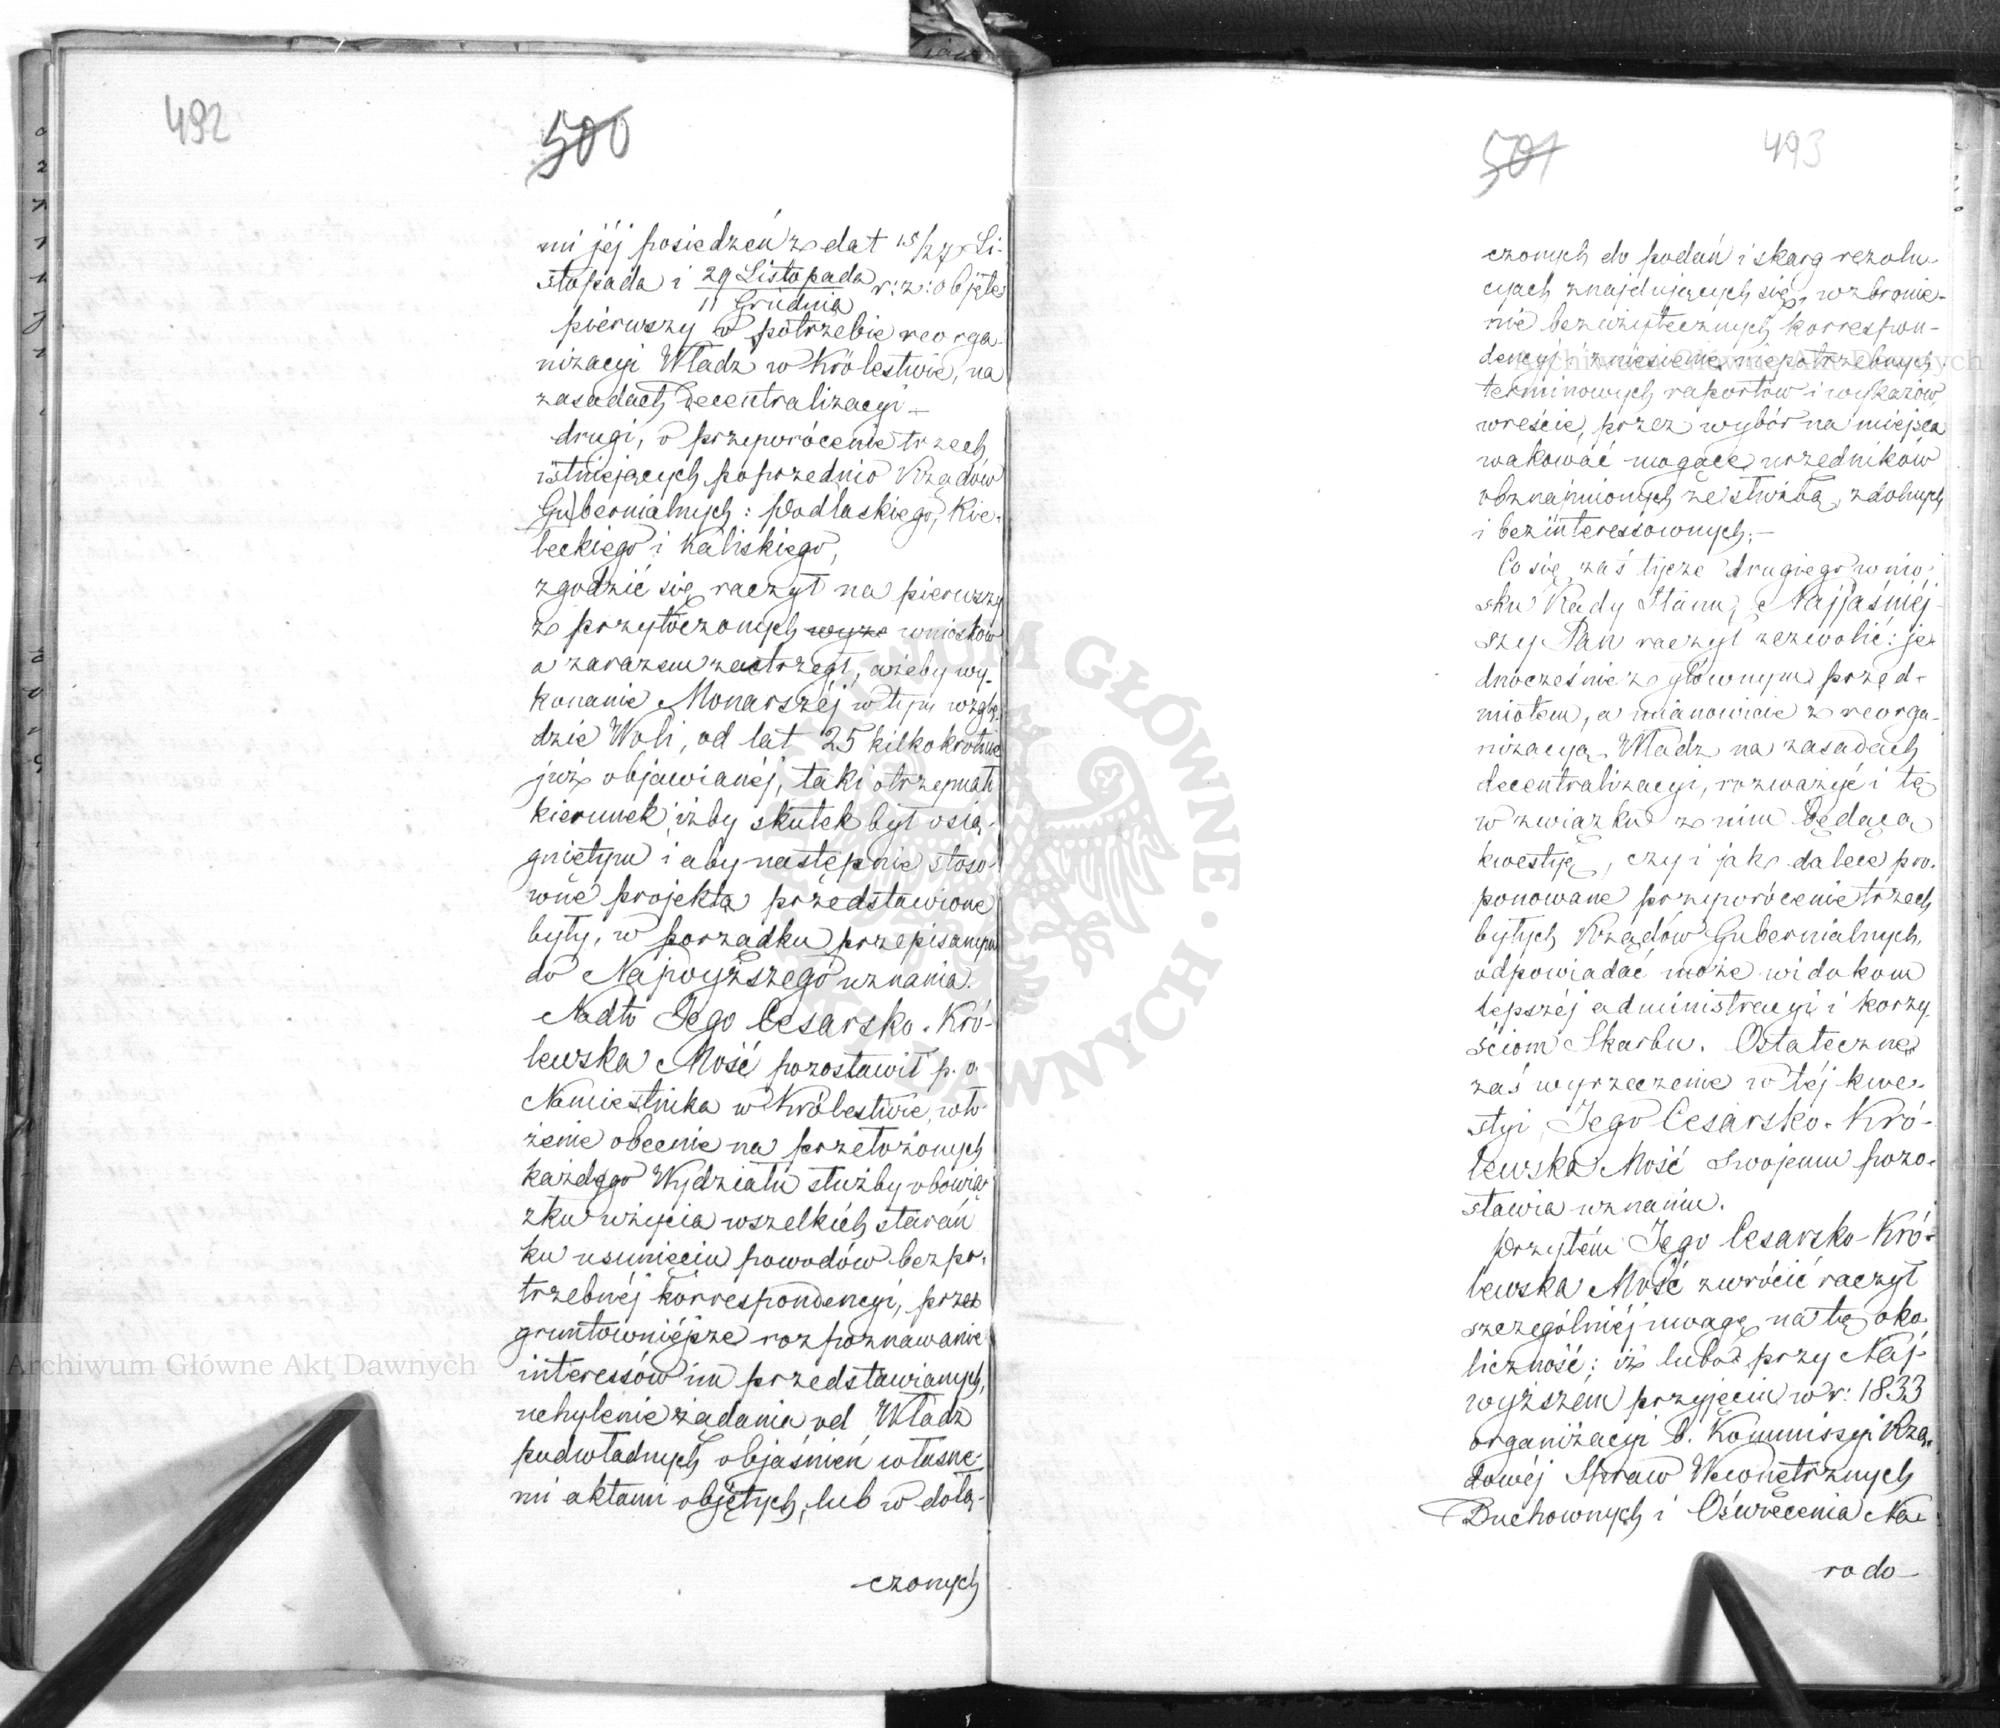 492
500
mi jéj posiedzeń z dat 15/27 Li-
stopada i 29 Listopada / 11 Grudnia r: z: objęte
pierwszy o potrzebie reorga-
nizacyi Władz w Królestwie, na
zasadach decentralizacyi —
drugi, o przywrócenie trzech
istniejących poprzednio Rządów
Gubernialnych: Podlaskiego, Kie-
leckiego i Kaliskiego,
zgodzić się raczył na pierwszy
z przytoczonych wyże wniosków
a zarazem zastrzegł, ażeby wy-
konanie Monarszéj w tym wzglę-
dzie Woli, od lat 25 kilkokrotnie
już objawianéj, taki otrzymał
kierunek, iżby skutek był osią-
gniętym i aby następnie stoso-
wne projekta przedstawione
były, w porządku przepisanym
do Najwyższego uznania.
Nadto Jego Cesarsko-Kró-
lewska Mość pozostawił p. o.
Namiestnika w Królestwie, wło-
żenie obecnie na przełożonych
każdego Wydziału służby obowią-
zku użycia wszelkich starań
ku usunięciu powodów bezpo-
trzebnéj korrespondencyi, przez
gruntowniéjsze rozpoznawanie
interessów im przedstawianych,
uchylenie żądania od Władz
podwładnych objaśnień własne-
mi aktami objętych, lub w dołą-
czonych
501
493
czonych do podań i skarg rezolu-
cyach znajdujących się, wzbronie-
nie bezużytecznych korrespon-
dencyj i zniesienie niepotrzebnych
terminowych raportów i wykazów,
wreście, przez wybór na miejsca
wakować mogące urzędników
obznajmionych ze służbą, zdolnych
i bezinteressownych; —
Co się zaś tycze drugiego wnio-
sku Rady Stanu, Najjaśniéj-
szy Pan raczył zezwolić: je-
dnocześnie z głównym przed-
miotem, a mianowicie z reorga-
nizacyą Władz na zasadach
decentralizacyi, rozważyć i tę
w związku z nim będącą
kwestyę, czy i jak dalece pro-
ponowane przywrócenie trzech
byłych Rządów Gubernialnych,
odpowiadać może widokom
lepszéj administracyi i korzy-
ściom Skarbu. Ostateczne
zaś wyrzeczenie w téj kwe-
styi, Jego Cesarsko-Kró-
lewska Mość Swojemu pozo-
stawia uznaniu.
Przytém Jego Cesarsko-Kró-
lewska Mość zwrócić raczył
szczególniéj uwagę na tę oko-
liczność; iż lubo przy Naj-
wyższem przyjęciu w r: 1833
organizacyi b. Kommissyi Rzą-
dowéj Spraw Wewnętrznych
Duchownych i Oświecenia Na-
rodo-
Archiwum Główne Akt Dawnych
Archiwum Główne Akt Dawnych
ARCHIWUM GŁÓWNE AKT DAWNYCH